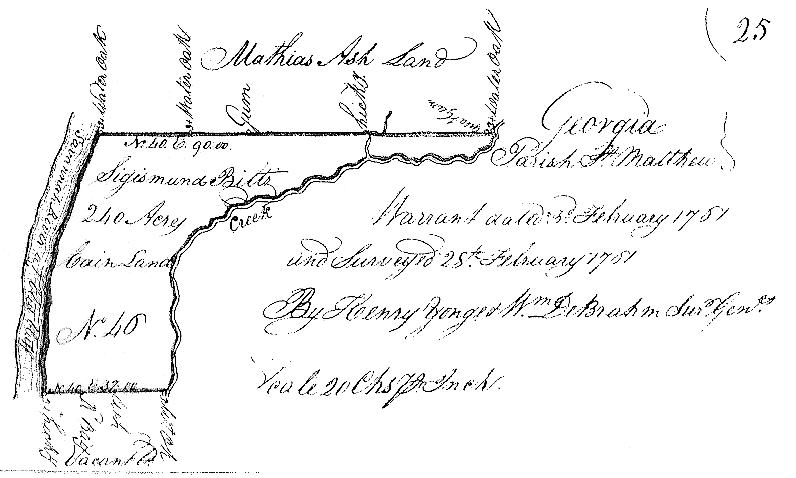 25
Mathias Ash Land
Water oak
Water oak
Gum
Hick.y
Water oak
N. 40. E. 90.00.
Georgia
Parish St. Matthew
Sigismund Biltz
240 Acres
Cain Land
No. 46
Creek
Savannah River
Warrant dated 3d. February 1761
and Surveyed 25th. February 1761
By Henry Yonge & Wm. DeBrahm Surs. Genl.
Scale 20 Chs. Pr. Inch.
N. 40. E. 37.00
Vacant